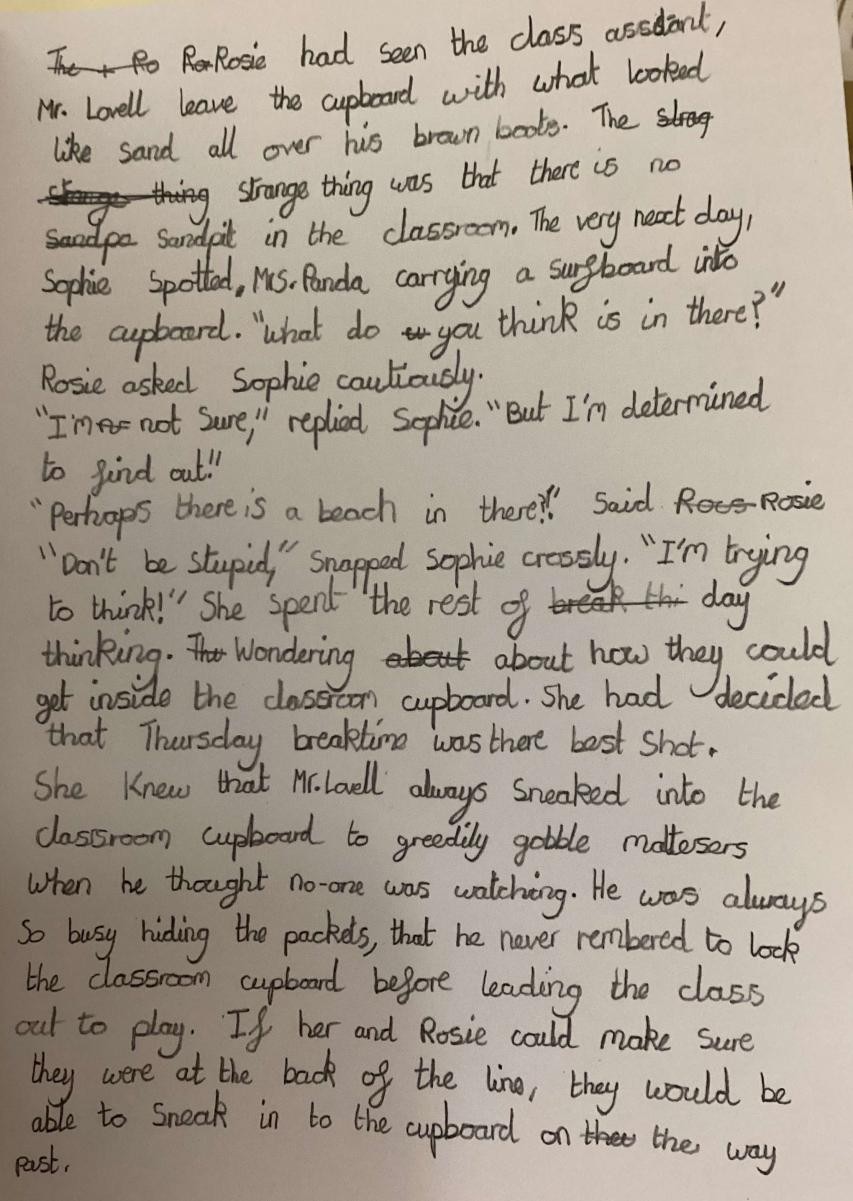 The + Ro Ro Rosie had seen the class assdant,
Mr. Lovell leave the cupboard with what looked
like sand all over his brown boots. The strag
stange thing strange thing was that there is no
sandpa sandpit in the classroom. The very next day,
Sophie spotted, Mrs. Panda carrying a surfboard into
the cupboard. "What do w you think is in there?"
Rosie asked Sophie cautiously.
"I'm not sure," replied Sophie. "But I'm determined
to find out!"
"Perhaps there is a beach in there?!" Said Roes Rosie
"Don't be stupid," snapped Sophie crossly. "I'm trying
to think!" She spent the rest of break thi day
thinking. The Wondering about about how they could
get inside the classroon cupboard. She had decided
that Thursday breaktime was there best shot.
She knew that Mr. Lovell always sneaked into the
classroom cupboard to greedily gobble maltesers
when he thought no-one was watching. He was always
so busy hiding the packets, that he never rembered to lock
the classroom cupboard before leading the class
out to play. If her and Rosie could make sure
they were at the back of the line, they would be
able to sneak in to the cupboard on thee the way
past.